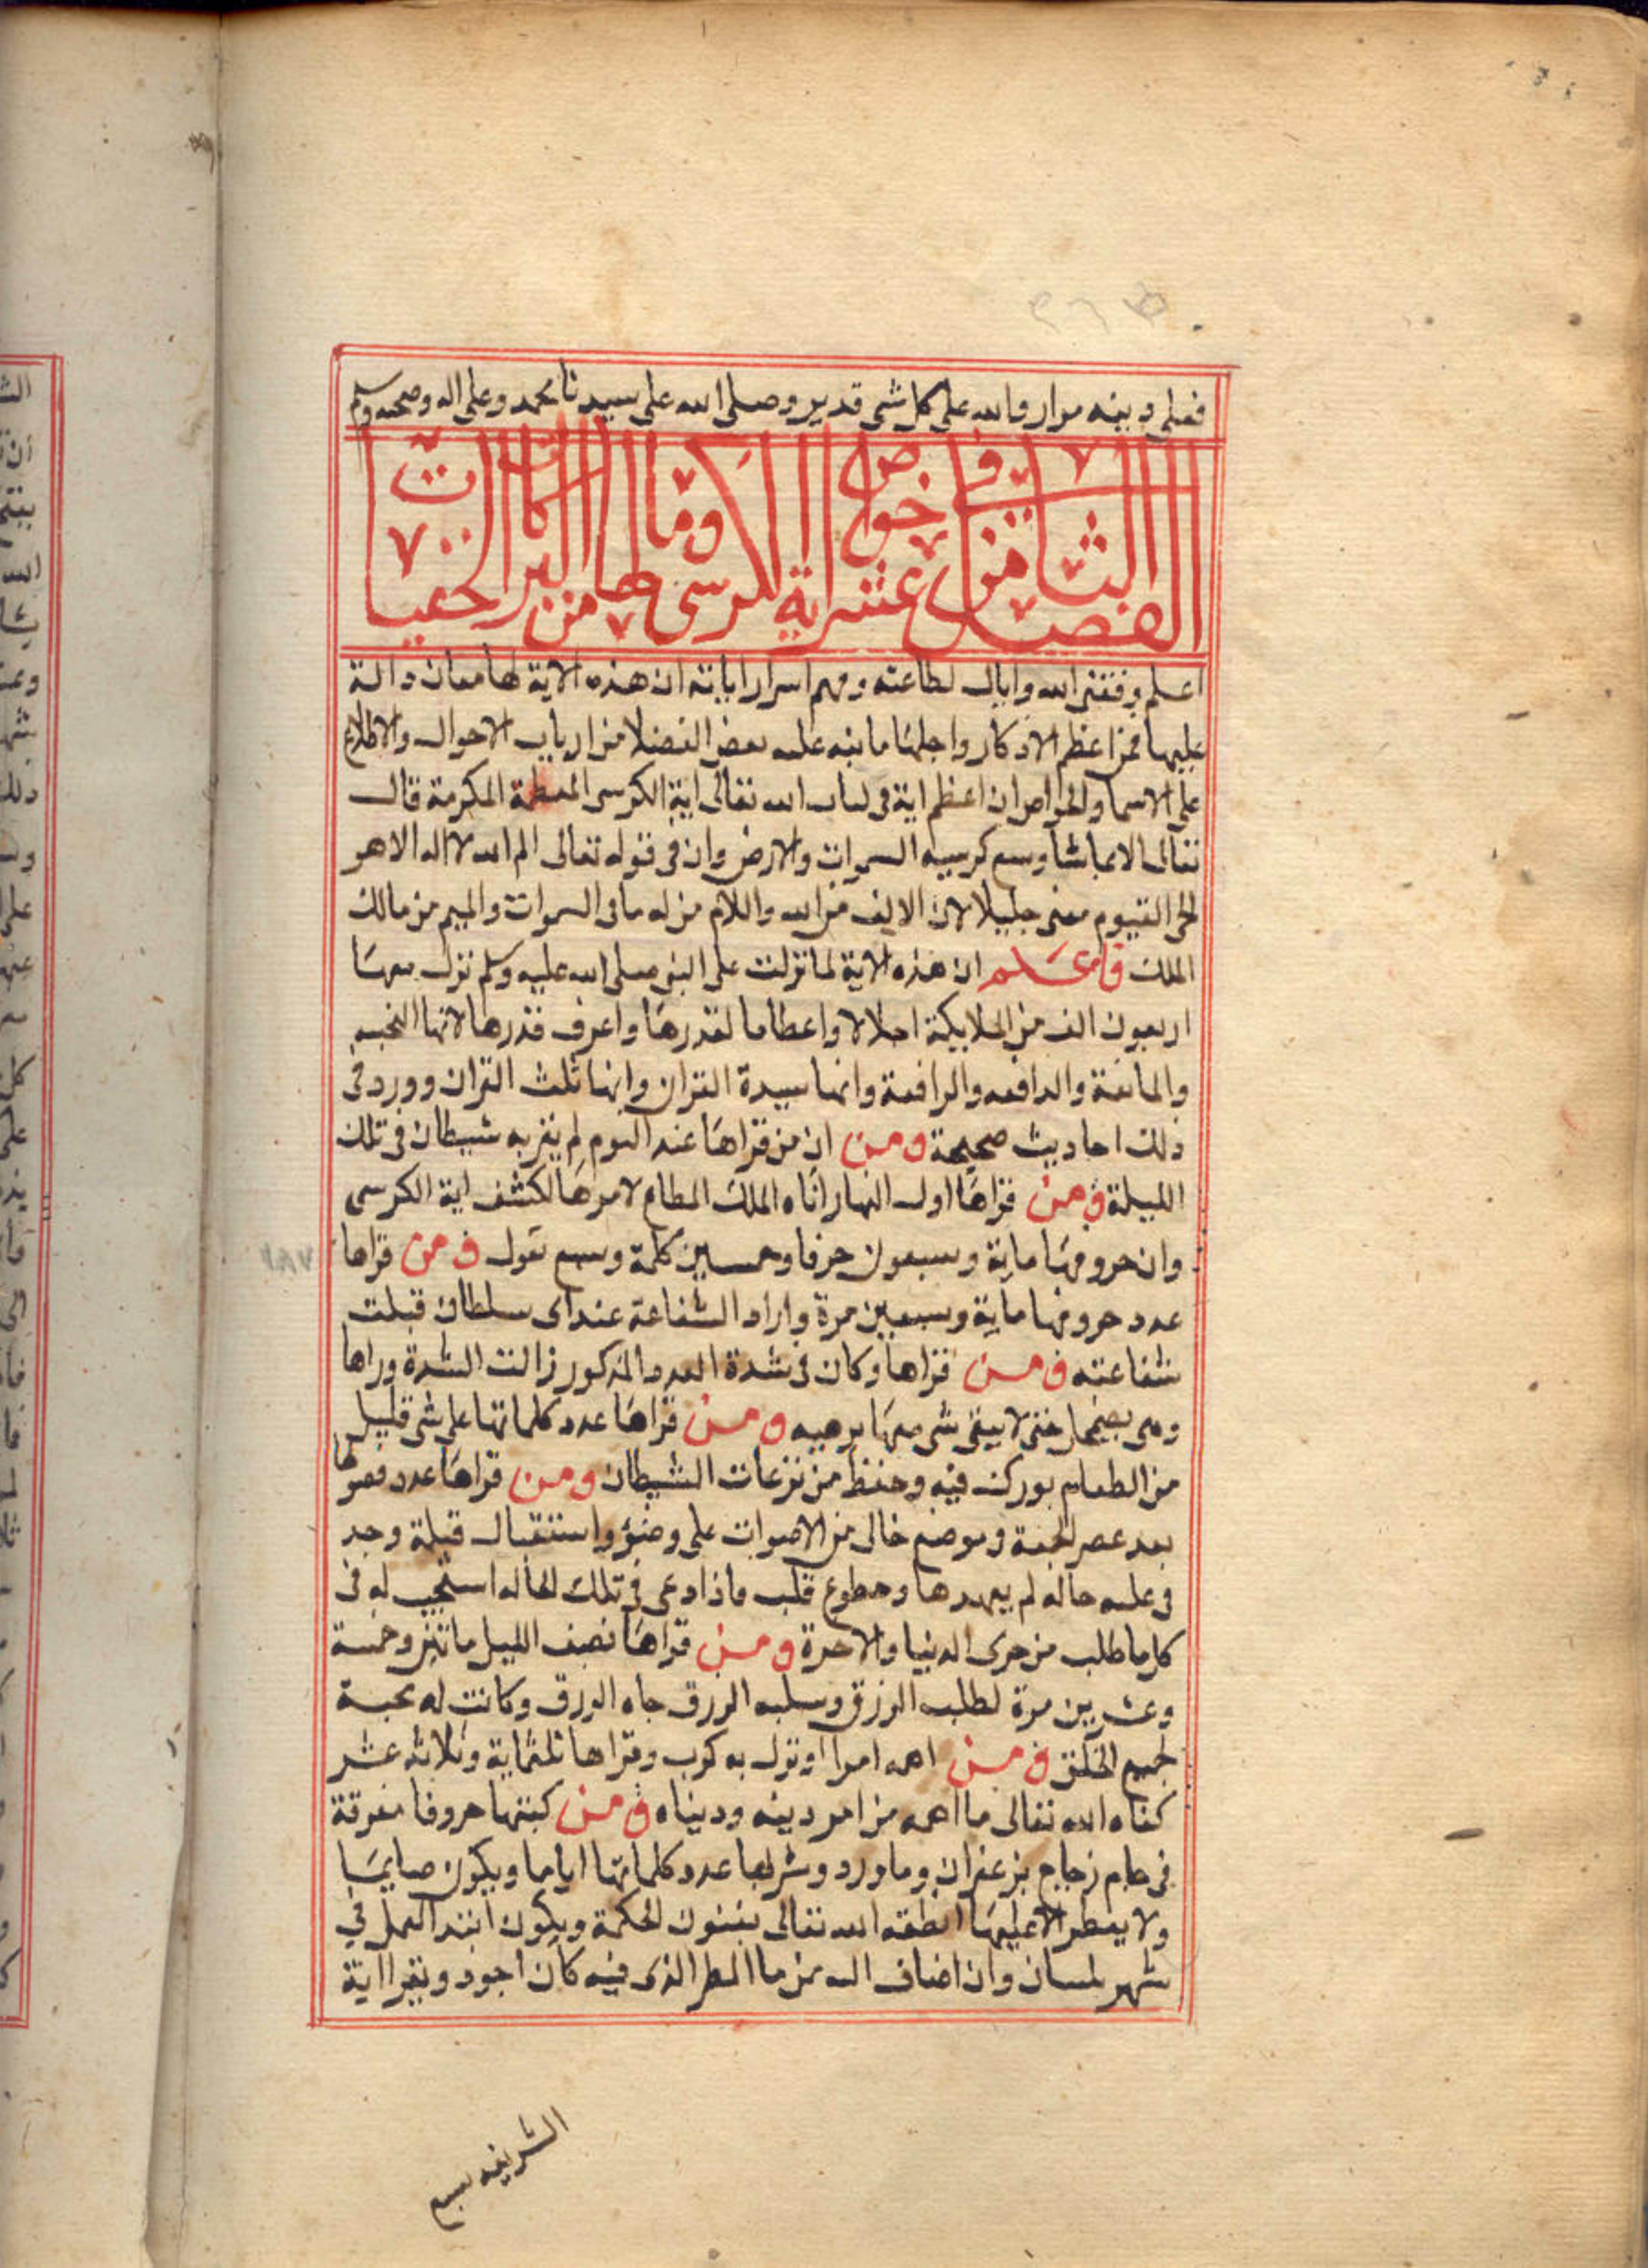 فعلى دينه مرار والله على كل شى قدير وصلى الله على سيدنا محمد وعلى اله وصحبه وسلم
الفصل الثامن عشر فى خواص اية الكرسى وما لها من البركات الخفيات
اعلم وفقنى الله واياك لطاعته وفهم اسرار اياته ان هذه الاية لها معان دالة
عليها فمن اعظم الاذكار واجلها ما نبه عليه بعض الفضلا من ارباب الاحوال والاطلاع
على الاسما والخواص ان اعظم اية فى كتاب الله تعالى اية الكرسى المعظمة المكرمة قال
تعالى الا بما شا وسع كرسيه السموات والارض وان فى قوله تعالى الم الله لا اله الا هو
الحى القيوم معنى جليلا لان الالف من الله واللام من له ما فى السموات والميم من مالك
الملك فاعلم ان هذه الاية لما نزلت على النبى صلى الله عليه وسلم نزل معها
اربعون الف من الملايكة اجلالا واعظاما لقدرها واعرف قدرها لانها المنجيه
والمانعة والدافعه والرافعة وانها سيدة القران وانها ثلث القران وورد فى
ذلك احاديث صحيحة ومن ان من قراها عند النوم لم يقربه شيطان فى تلك
الليلة ومن قراها اول النهار اتاه الملك المطاع لامرها لكشف اية الكرسى
وان حروفها ماية وسبعون حرفا وخمسين كلمة وسبع نقول فمن قراها
عدد حروفها ماية وسبعين مرة واراد الشفاعة عند اى سلطان قبلت
شفاعته ومن قراها وكان فى شدة العدد المذكور زالت الشدة وراها
وهى تضمحل حتى لا يبقى شى معها يرهبه ومن قراها عدد كلماتها على شى قليل
من الطعام بورك فيه وحفظ من نزعات الشيطان ومن قراها عدد فصولها
بعد عصر الجمعة وموضع خالى من الاصوات على وضؤ واستقبال قبلة وجد
فى علبه حاله لم يعهدها وخطوع قلب فاذا دعى فى تلك الحاله استجيب له فى
كل ما طلب من حرى الدنيا والاخرة ومن قراها نصف الليل ماتين وخمسة
وعشرين مرة لطلب الرزق وسلبه الرزق جاه الرزق وكانت له محبة
لجميع الخلق ومن اهمه امرا او نزل به كرب وقراها ثلثماية وثلاثه عشر
كفاه الله تعالى ما اهمه من امر دينه ودنياه ومن كتبها حروفا مفرقة
فى جام زجاج بزعفران وما ورد وشربها عدد كلماتها اياما ويكون صايما
ولا يفطر الا عليها انطقه الله تعالى بفنون الحكمة ويكون ابتد العمل فى
شهر نيسان وان اضاف اليه من ما المطر الذى فيه كان اجود ويقرا اية
الشريفه سبع